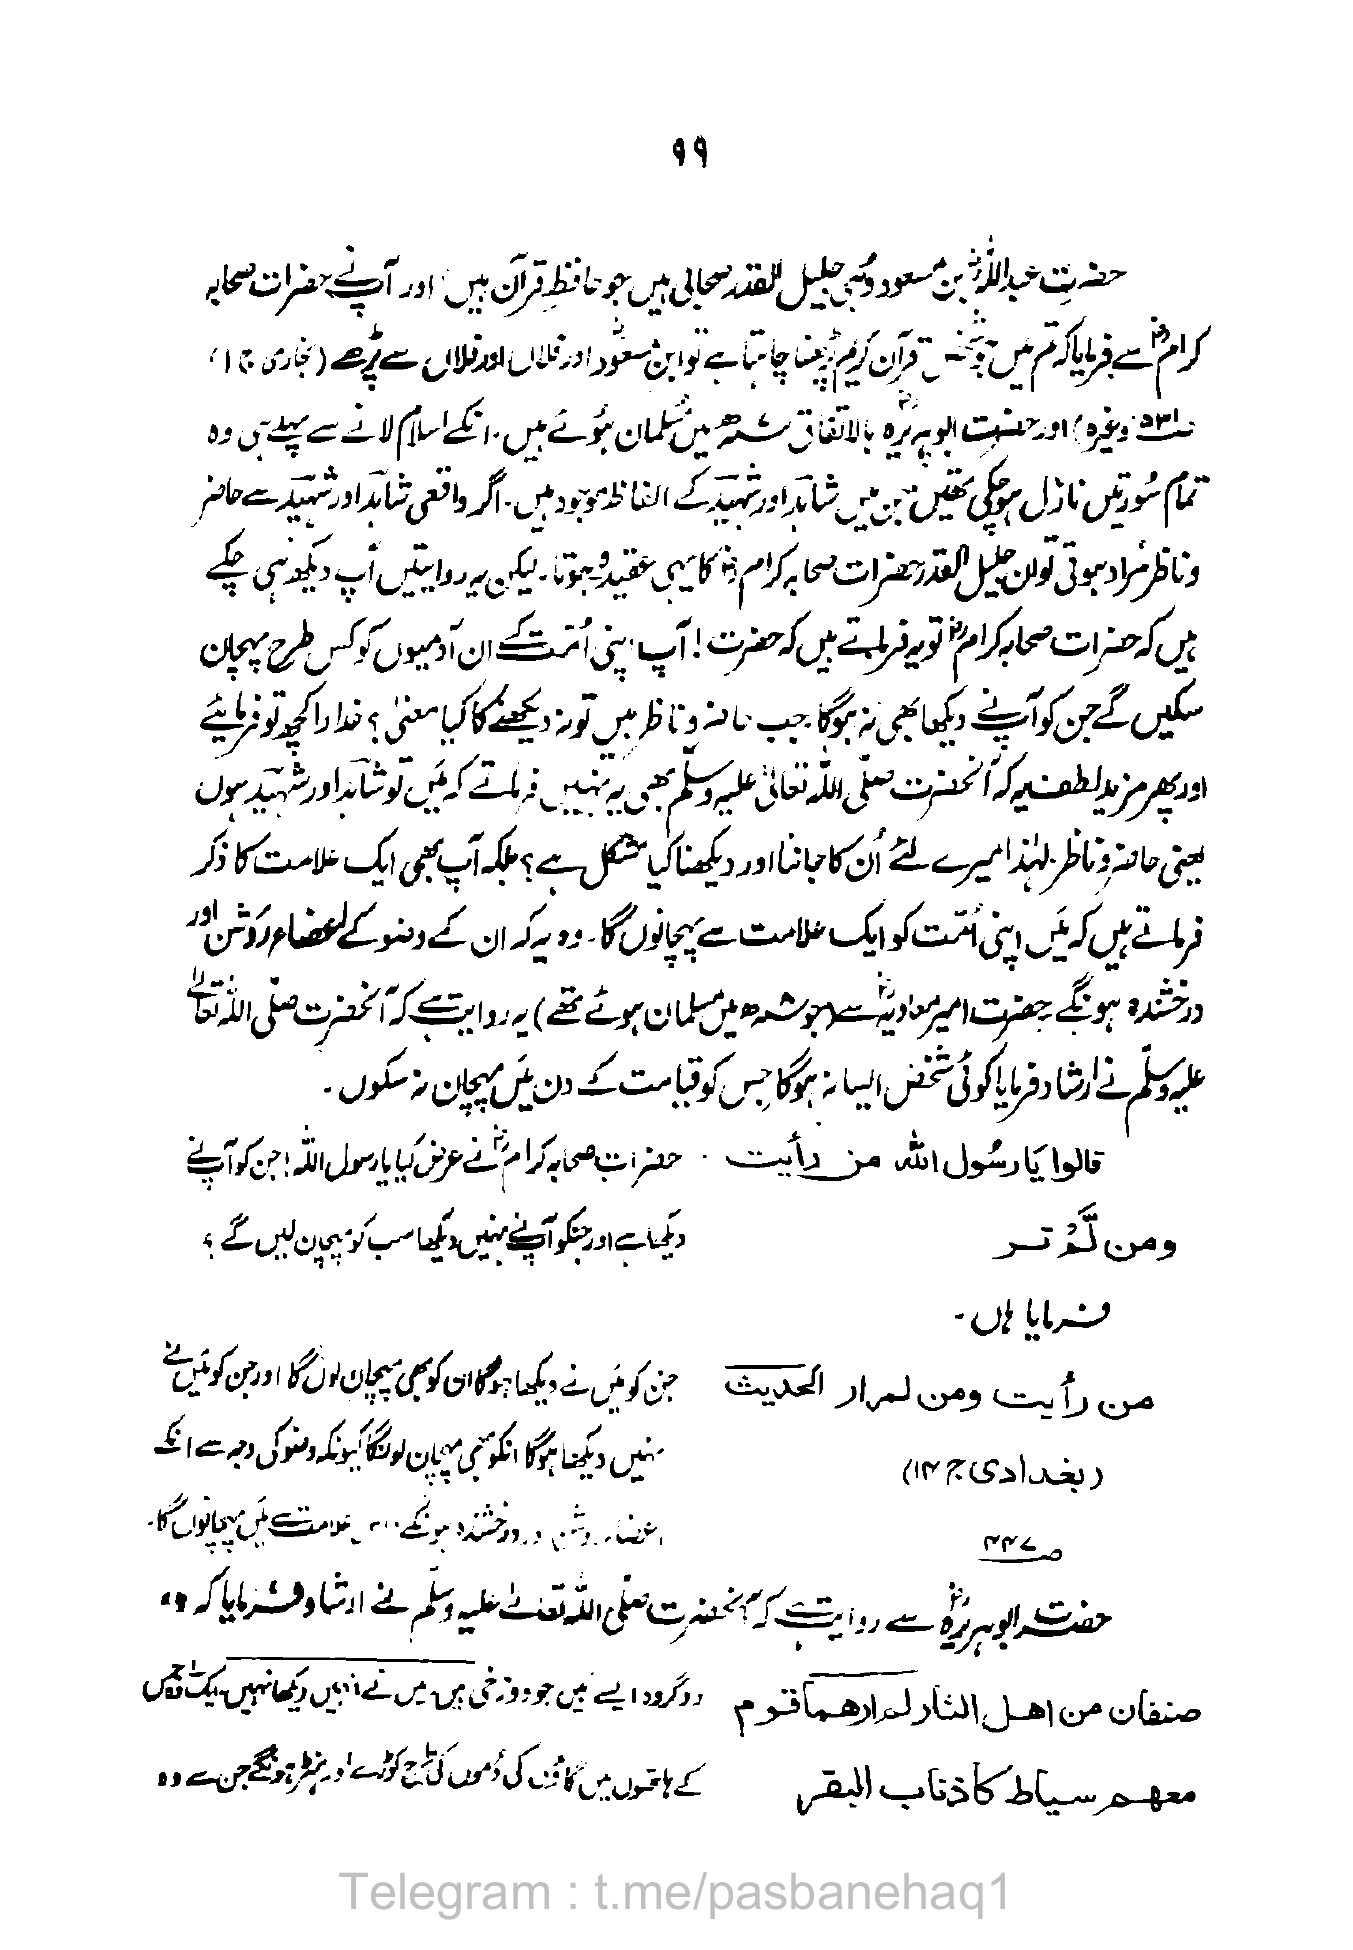 ۹۹
حضرت عبداللہؓ بن مسعود وہی جلیل القدر صحابی ہیں جو حافظِ قرآن ہیں اور آپ نے حضرات صحابہ
کرامؓ سے فرمایا کہ تم میں جو شخص قرآن کریم پڑھنا چاہتا ہے تو ابنِ مسعودؓ اور فلاں اور فلاں سے پڑھے (بخاری ج ۱،
ص۵۳۱ وغیرہ) اور حضرت ابوہریرہؓ بالاتفاق ۷ھ میں مسلمان ہوئے ہیں۔ انکے اسلام لانے سے پہلے ہی وہ
تمام سُورتیں نازل ہو چکی تھیں جن میں شاہد اور شہید کے الفاظ موجود ہیں۔ اگر واقعی شاہد اور شہید سے حاضر
و ناظر مُراد ہوتی تو ان جلیل القدر حضرات صحابہ کرامؓ کا یہی عقیدہ ہوتا۔ لیکن یہ روایتیں آپ دیکھ ہی چکے
ہیں کہ حضرات صحابہ کرامؓ تو یہ فرماتے ہیں کہ حضرت! آپ اپنی اُمّت کے ان آدمیوں کو کس طرح پہچان
سکیں گے جن کو آپ نے دیکھا بھی نہ ہوگا۔ جب حاضر و ناظر ہیں تو نہ دیکھنے کا کیا معنیٰ؟ خدارا کچھ تو فرمائیے
اور پھر مزید لطف یہ کہ آنحضرت صلّی اللہ تعالیٰ علیہ وسلم بھی یہ نہیں فرماتے کہ مَیں تو شاہد اور شہید ہوں
یعنی حاضر و ناظر۔ لہٰذا میرے لئے اُن کا جاننا اور دیکھنا کیا مشکل ہے؟ بلکہ آپ بھی ایک علامت کا ذکر
فرماتے ہیں کہ مَیں اپنی اُمّت کو ایک علامت سے پہچانوں گا۔ وہ یہ کہ ان کے وضو کے اعضاء روشن اور
درخشندہ ہونگے۔ حضرت امیر معاویہؓ سے (جو ۸ھ میں مسلمان ہوئے تھے) یہ روایت ہے کہ آنحضرت صلّی اللہ تعالیٰ
علیہ وسلّم نے ارشاد فرمایا کوئی شخص ایسا نہ ہوگا جس کو قیامت کے دن مَیں پہچان نہ سکوں۔
قالوا یَا رسُول اللہ من رأیت
ومن لَّمْ تر
حضرات صحابہ کرامؓ نے عرض کیا یا رسول اللہ! جن کو آپ نے
دیکھا ہے اور جنکو آپ نے نہیں دیکھا سب کو پہچان لیں گے؟
فرمایا ہاں۔
من رأیت ومن لم ار الحدیث
(بغدادی ج ۱۴
ص۴۴۷
جن کو مَیں نے دیکھا ہوگا ان کو بھی پہچان لوں گا اور جن کو مَیں نے
نہیں دیکھا ہوگا انکو بھی پہچان لونگا کیونکہ وضو کی وجہ سے انکے
اعضاء روشن اور درخشندہ ہونگے علامت سے مَیں پہچانوں گا۔
حضرت ابوہریرہؓ سے روایت ہے کہ آنحضرت صلّی اللہ تعالےٰ علیہ وسلّم نے ارشاد فرمایا کہ
صنفان من اھل النار لم ارھما قوم
معھم سیاط کاذناب البقر
دو گروہ ایسے ہیں جو دوزخی ہیں میں نے انہیں دیکھا نہیں۔ ایک وہ جس
کے ہاتھوں میں گاؤں کی دُموں کی طرح کوڑے اور ہنٹر ہونگے جن سے وہ
Telegram : t.me/pasbanehaq1